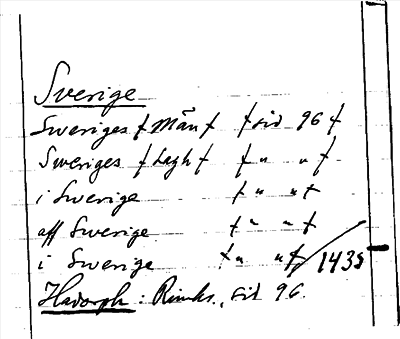 Sverige
Sweriges f Män f f sid 96 f
Sweriges f Lagh f f " " f
i Swerige f " " f
aff Swerige f " " f
i Swerige f " " f 1435
Hadorph: Rimkr., sid 96.